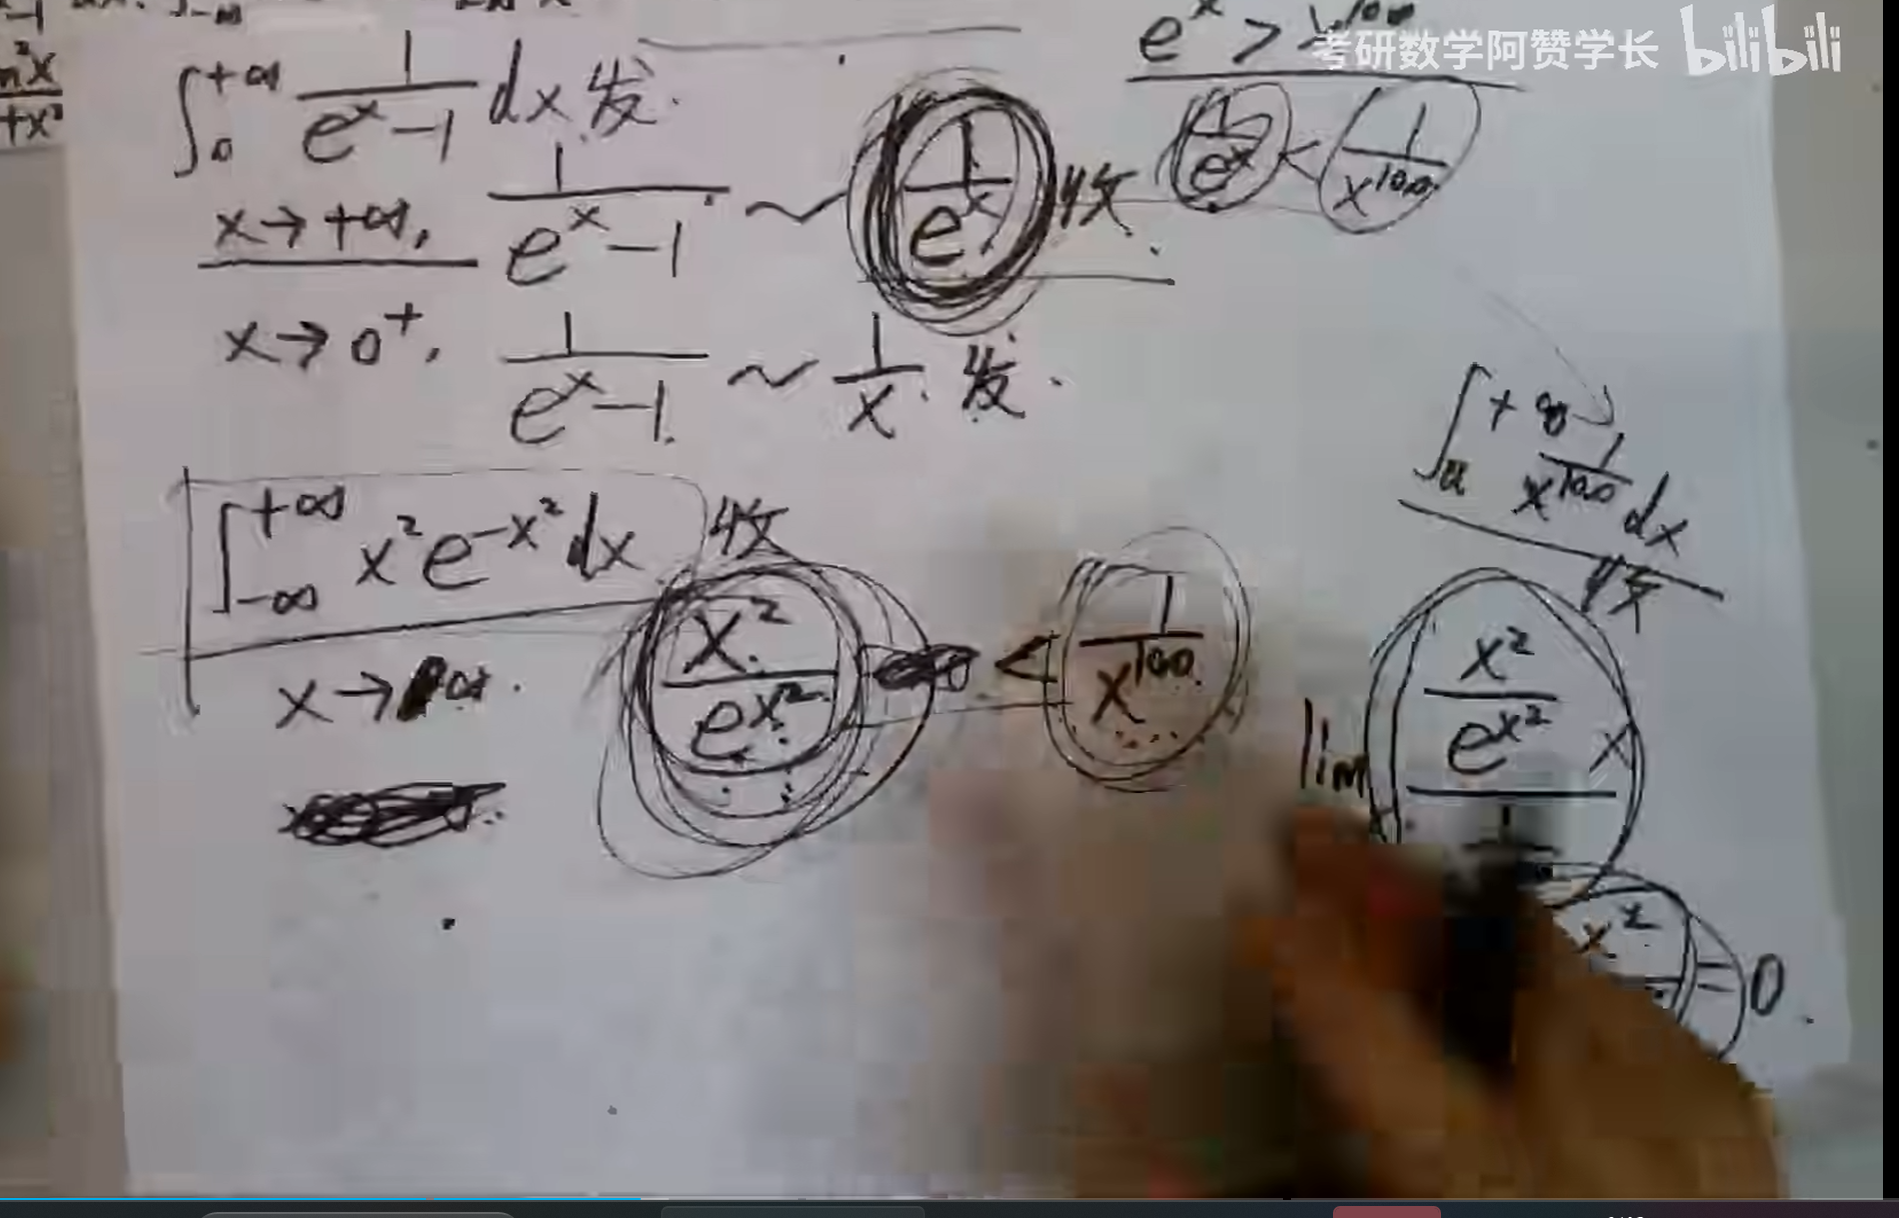 考研数学阿赞学长 bilibili
e^x > x^100
∫_0^{+∞} 1/(e^x-1) dx 发.
1/e^x < 1/x^100
x→+∞, 1/(e^x-1) ~ 1/e^x 收.
x→0^+, 1/(e^x-1) ~ 1/x. 发.
∫_a^{+∞} 1/x^100 dx
收
∫_{-∞}^{+∞} x²e^{-x²}dx 收
x→∞. x²/e^{x²} < 1/x^100
lim x²/e^{x²}
x²
=0